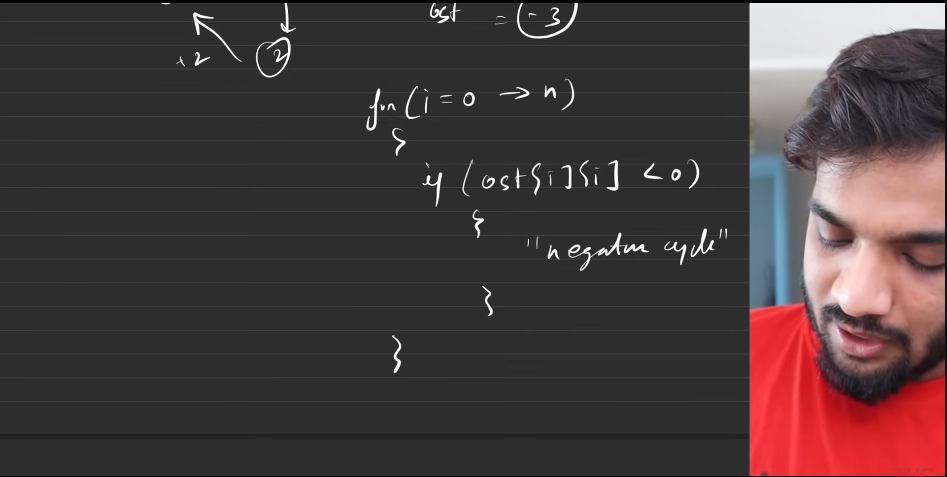 cost = -3
+2 2
for (i = 0 → n)
{
if (cost[i][i] < 0)
{
"negative cycle"
}
}